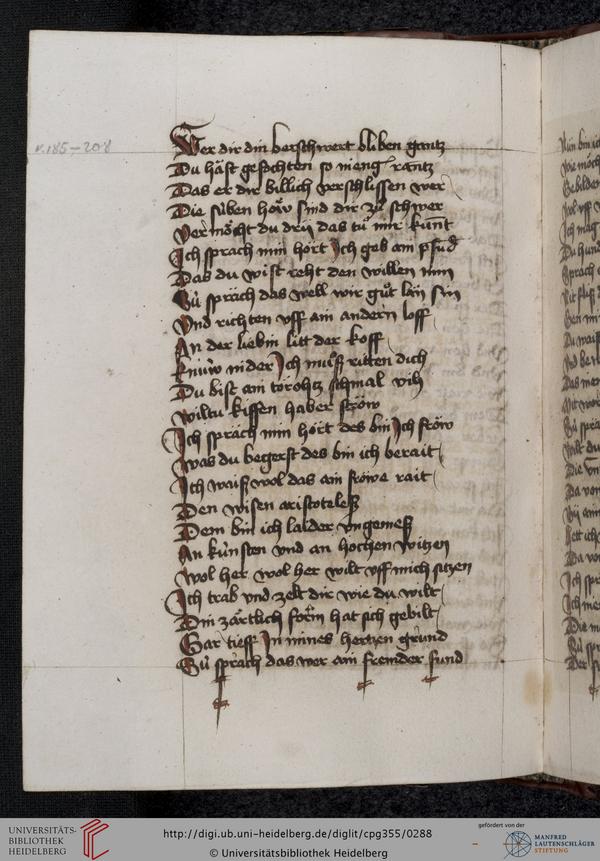 v. 185–208
Wer dir din herschwert bliben gantz
Du häst gefochten so meng rantz
Das er dir billich verschlissen wer
Die süben höw sind dir zů schwer
Vermöcht du drij das tů mir kunt
Ich sprach min hort Ich geb ain pfud
Das du wist reht den willen min
Sü spräch das well wir gůt län sin
Vnd richten vff ain andern loff
An der liebin litt der koff
knüw nider Ich můß ritten dich
Du bist ain torohtz schmal vih
wiltu kissen haber ströw
Ich spräch min hort des bin Ich fröw
was du begerst des bin ich berait
Ich waiß wol das ain fröwe rait
Den wisen aristoteleß
Dem bin ich laider vngemeß
An künsten vnd an hochen witzen
wol her wol her wilt vff mich sitzen
Ich trab vnd zelt dir wie du wilt
Din zärtlich form hat sich gebilt
Gar tieff In mines hertzen grund
Sü sprach das wer ain fremder fund
UNIVERSITÄTS-
BIBLIOTHEK
HEIDELBERG
http://digi.ub.uni-heidelberg.de/diglit/cpg355/0288
© Universitätsbibliothek Heidelberg
gefördert von der
MANFRED
LAUTENSCHLÄGER
STIFTUNG